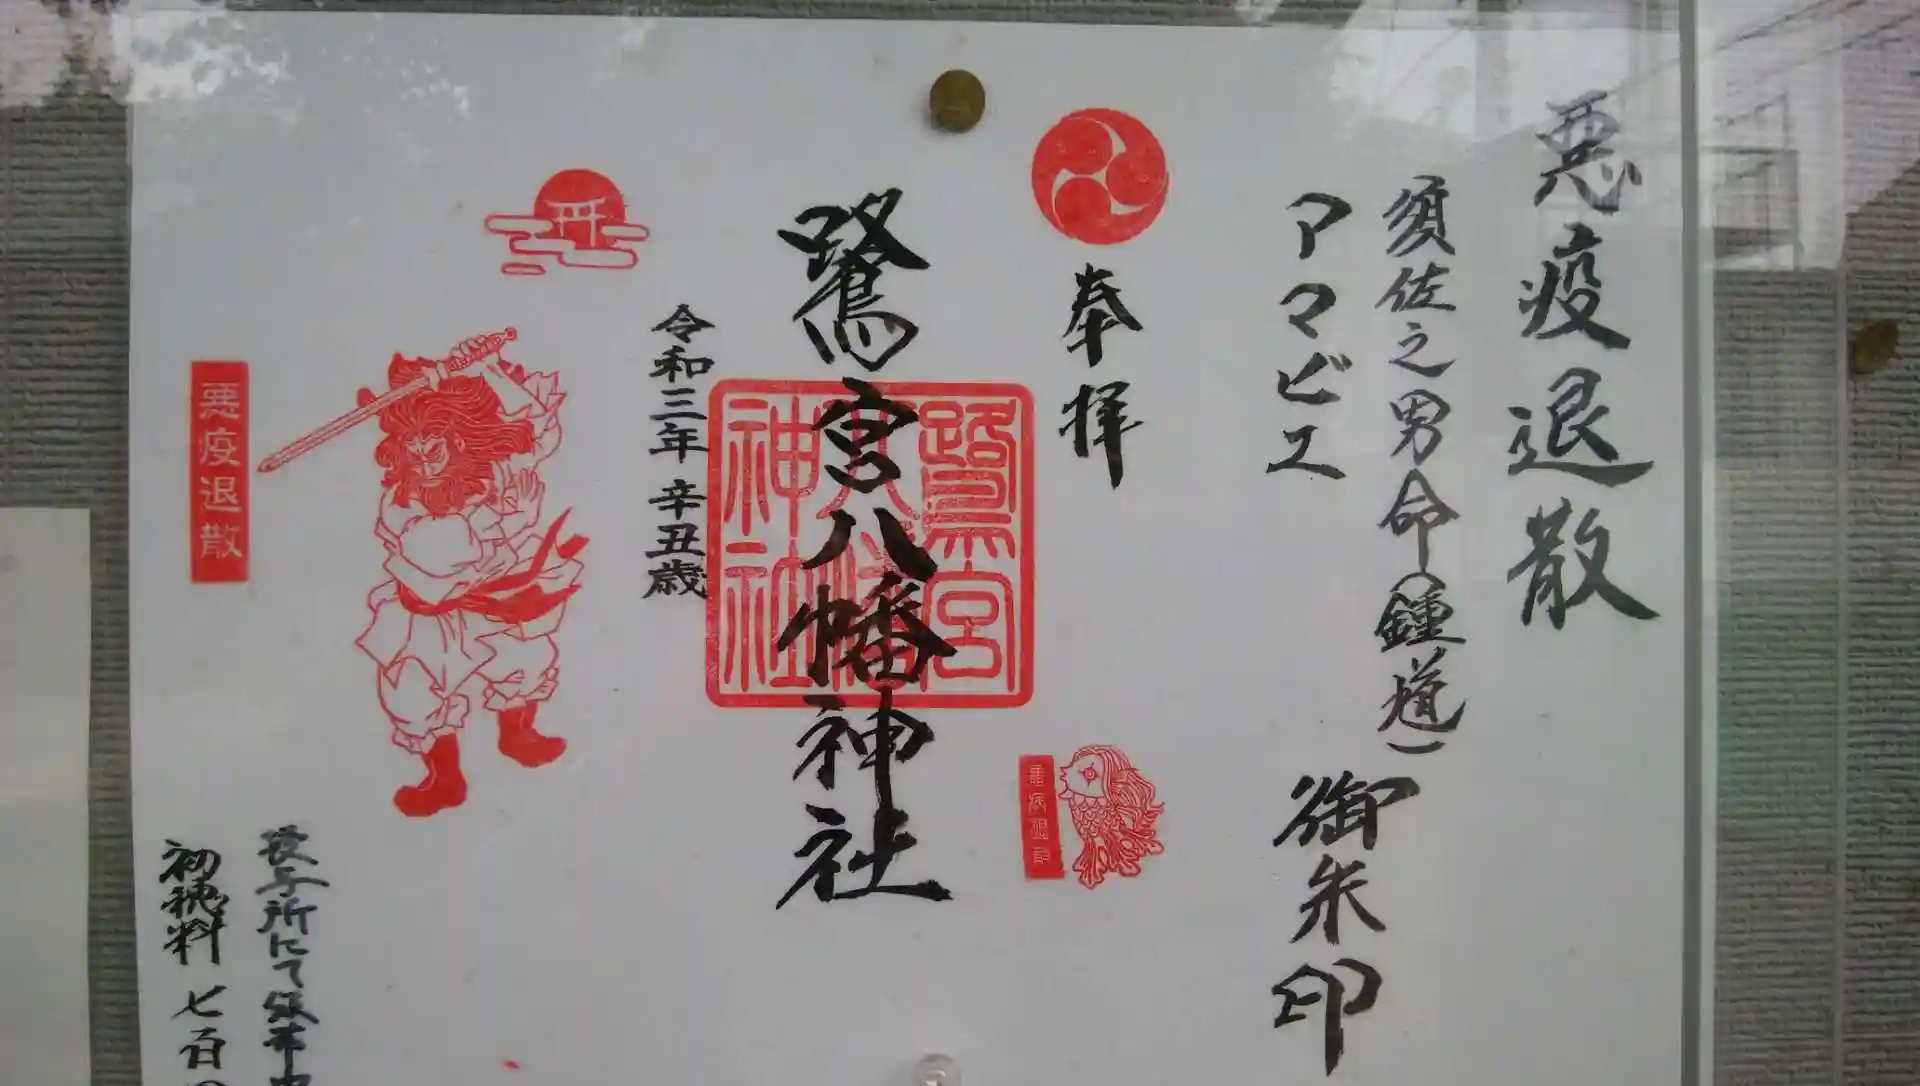 悪疫退散
須佐之男命(鍾馗)
アマビエ
御朱印
奉拝
悪病退散
鷺宮八幡神社
鷺宮
八幡
神社
令和三年 辛丑歳
悪疫退散
授与所にて頒布中
初穂料 七百円